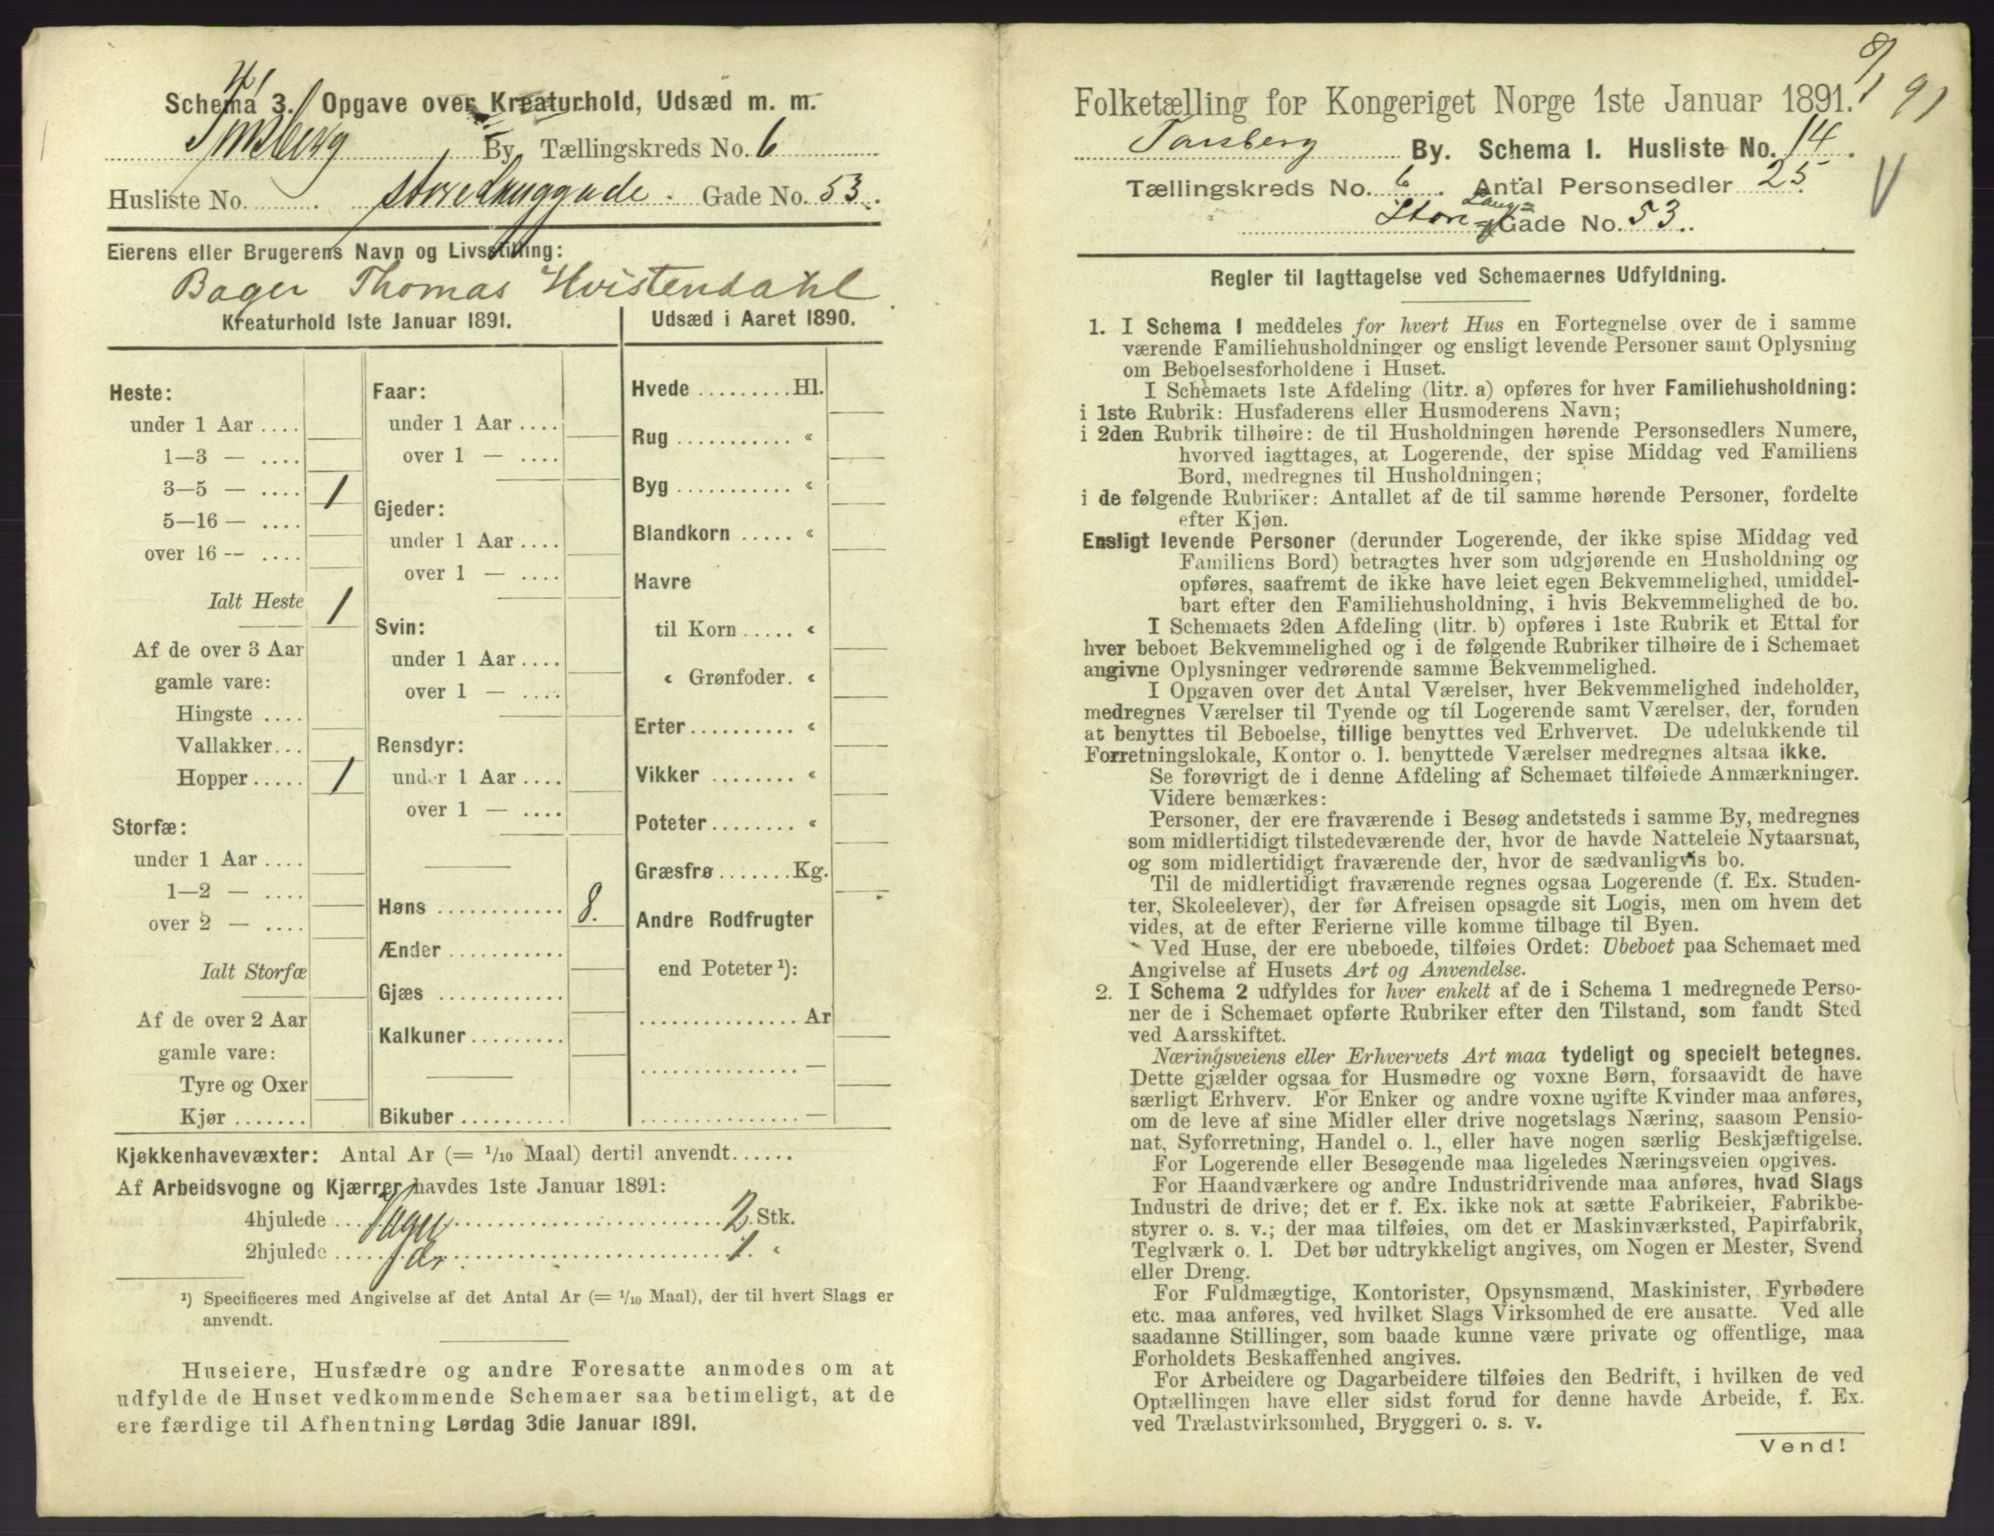 Schema 3. Opgave over Kreaturhold, Udsæd m. m.
Tønsberg By Tællingskreds No. 6
Husliste No. Store Langgade. Gade No. 53.
Eierens eller Brugerens Navn og Livsstilling:
Bager Thomas Hvistendahl.
Kreaturhold 1ste Januar 1891.
Heste:
under 1 Aar ....
1—3 — ....
3—5 — .... 1
5—16 — ....
over 16 -- ....
Ialt Heste 1
Af de over 3 Aar
gamle vare:
Hingste ....
Vallakker...
Hopper..... 1
Storfæ:
under 1 Aar ....
1—2 — ....
over 2 — ....
Ialt Storfæ
Af de over 2 Aar
gamle vare:
Tyre og Oxer
Kjør .......
Faar:
under 1 Aar ....
over 1 — ....
Gjeder:
under 1 Aar ....
over 1 — ....
Svin:
under 1 Aar ....
over 1 — ....
Rensdyr:
under 1 Aar ....
over 1 — ....
Høns ............ 8.
Ænder ...........
Gjæs ............
Kalkuner.........
Bikuber ..........
Udsæd i Aaret 1890.
Hvede .........Hl.
Rug ........... «
Byg ........... «
Blandkorn ..... «
Havre
til Korn ..... «
« Grønfoder. «
Erter.......... «
Vikker ........ «
Poteter........ «
Græsfrø.......Kg.
Andre Rodfrugter
end Poteter ¹):
............... Ar
............... —
............... —
Kjøkkenhavevæxter: Antal Ar (= 1/10 Maal) dertil anvendt......
Af Arbeidsvogne og Kjærrer havdes 1ste Januar 1891:
4hjulede ... 2 Stk.
2hjulede ... 1. «
¹) Specificeres med Angivelse af det Antal Ar (= 1/10 Maal), der til hvert Slags er
anvendt.
Huseiere, Husfædre og andre Foresatte anmodes om at
udfylde de Huset vedkommende Schemaer saa betimeligt, at de
ere færdige til Afhentning Lørdag 3die Januar 1891.
9/1 91
Folketælling for Kongeriget Norge 1ste Januar 1891.
Tønsberg By. Schema I. Husliste No. 14.
Tællingskreds No. 6. Antal Personsedler 25
Store Lang= Gade No. 53.
Regler til Iagttagelse ved Schemaernes Udfyldning.
1. I Schema I meddeles for hvert Hus en Fortegnelse over de i samme
værende Familiehusholdninger og ensligt levende Personer samt Oplysning
om Beboelsesforholdene i Huset.
I Schemaets 1ste Afdeling (litr. a) opføres for hver Familiehusholdning:
i 1ste Rubrik: Husfaderens eller Husmoderens Navn;
i 2den Rubrik tilhøire: de til Husholdningen hørende Personsedlers Numere,
hvorved iagttages, at Logerende, der spise Middag ved Familiens
Bord, medregnes til Husholdningen;
i de følgende Rubriker: Antallet af de til samme hørende Personer, fordelte
efter Kjøn.
Ensligt levende Personer (derunder Logerende, der ikke spise Middag ved
Familiens Bord) betragtes hver som udgjørende en Husholdning og
opføres, saafremt de ikke have leiet egen Bekvemmelighed, umiddel-
bart efter den Familiehusholdning, i hvis Bekvemmelighed de bo.
I Schemaets 2den Afdeling (litr. b) opføres i 1ste Rubrik et Ettal for
hver beboet Bekvemmelighed og i de følgende Rubriker tilhøire de i Schemaet
angivne Oplysninger vedrørende samme Bekvemmelighed.
I Opgaven over det Antal Værelser, hver Bekvemmelighed indeholder,
medregnes Værelser til Tyende og til Logerende samt Værelser, der, foruden
at benyttes til Beboelse, tillige benyttes ved Erhvervet. De udelukkende til
Forretningslokale, Kontor o. l. benyttede Værelser medregnes altsaa ikke.
Se forøvrigt de i denne Afdeling af Schemaet tilføiede Anmærkninger.
Videre bemærkes:
Personer, der ere fraværende i Besøg andetsteds i samme By, medregnes
som midlertidigt tilstedeværende der, hvor de havde Natteleie Nytaarsnat,
og som midlertidigt fraværende der, hvor de sædvanligvis bo.
Til de midlertidigt fraværende regnes ogsaa Logerende (f. Ex. Studen-
ter, Skoleelever), der før Afreisen opsagde sit Logis, men om hvem det
vides, at de efter Ferierne ville komme tilbage til Byen.
Ved Huse, der ere ubeboede, tilføies Ordet: Ubeboet paa Schemaet med
Angivelse af Husets Art og Anvendelse.
2. I Schema 2 udfyldes for hver enkelt af de i Schema 1 medregnede Perso-
ner de i Schemaet opførte Rubriker efter den Tilstand, som fandt Sted
ved Aarsskiftet.
Næringsveiens eller Erhvervets Art maa tydeligt og specielt betegnes.
Dette gjælder ogsaa for Husmødre og voxne Børn, forsaavidt de have
særligt Erhverv. For Enker og andre voxne ugifte Kvinder maa anføres,
om de leve af sine Midler eller drive nogetslags Næring, saasom Pensio-
nat, Syforretning, Handel o. l., eller have nogen særlig Beskjæftigelse.
For Logerende eller Besøgende maa ligeledes Næringsveien opgives.
For Haandværkere og andre Industridrivende maa anføres, hvad Slags
Industri de drive; det er f. Ex. ikke nok at sætte Fabrikeier, Fabrikbe-
styrer o. s. v.; der maa tilføies, om det er Maskinværksted, Papirfabrik,
Teglværk o. l. Det bør udtrykkeligt angives, om Nogen er Mester, Svend
eller Dreng.
For Fuldmægtige, Kontorister, Opsynsmænd, Maskinister, Fyrbødere
etc. maa anføres, ved hvilket Slags Virksomhed de ere ansatte. Ved alle
saadanne Stillinger, som baade kunne være private og offentlige, maa
Forholdets Beskaffenhed angives.
For Arbeidere og Dagarbeidere tilføies den Bedrift, i hvilken de ved
Optællingen have eller sidst forud for denne havde Arbeide, f. Ex.
ved Trælastvirksomhed, Bryggeri o. s. v.
Vend!